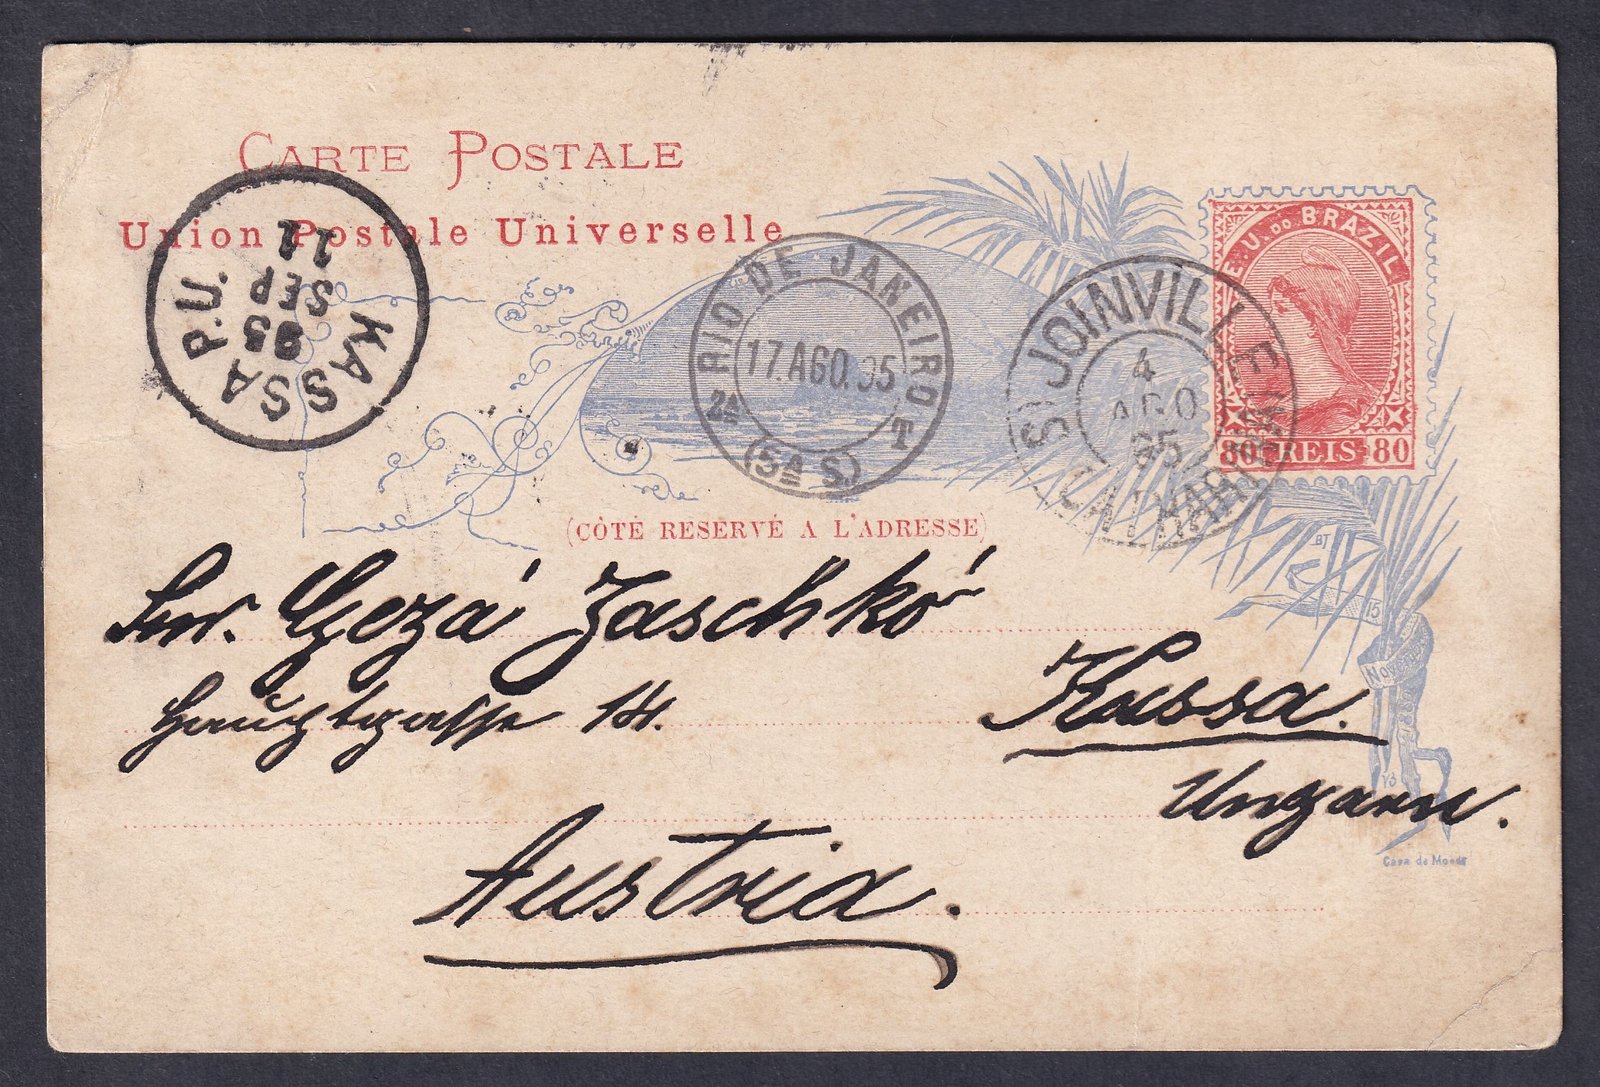 CARTE POSTALE
Union Postale Universelle
E. U. DO BRAZIL
80 REIS 80
KASSA P.U.
95
SEP
11
RIO DE JANEIRO
17.AGO.95
2ª T
(5ª S.)
JOINVILLE
4
AGO
95
(CÔTÉ RESERVÉ A L'ADRESSE)
BJ
15
Novembro
Snr. Gezá Zaschkó
Hauptgasse 14.
Kassa.
Ungarn.
Austria.
Casa da Moeda